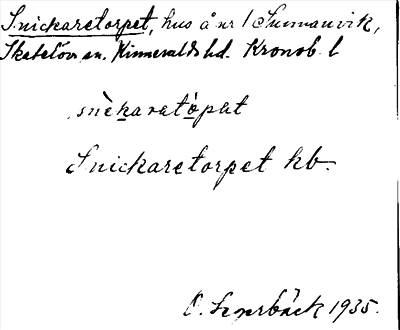 Snickaretorpet, hus å nr 1 Sunnanvik,
Skatelövs sn. Kinnevalds hd. Kronob. l
snèkaratòpat
Snickaretorpet hb.
1935.